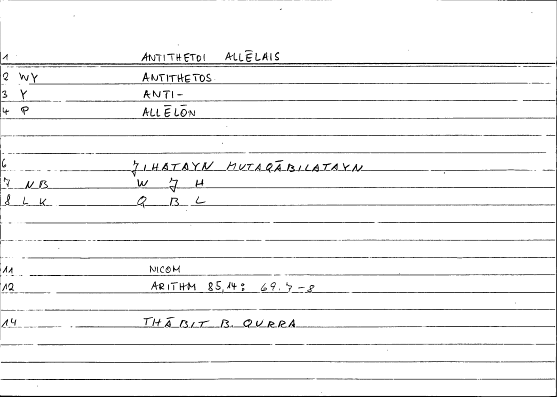 1 ANTITHETOI ALLĒLAIS
2 WY ANTITHETOS
3 Y ANTI-
4 P ALLĒLŌN
6 JIHATAYN MUTAQĀBILATAYN
7 NB W J H
8 LK Q B L
11 NICOM
12 ARITHM 85,14: 69.7-8
14 THĀBIT B. QURRA